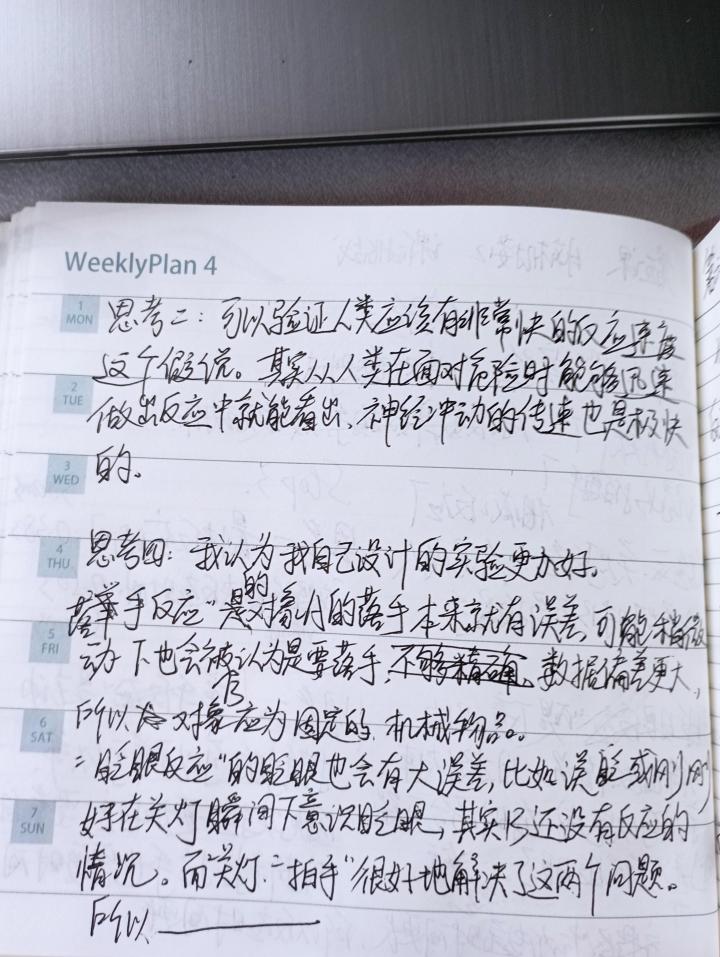 WeeklyPlan 4
1 MON 思考二：可以验证人类应该有非常快的反应速度
这个假说。其实从人类在面对危险时能够迅速
2 TUE
做出反应中就能看出，神经冲动的传速也是极快
3 WED 的。
4 THU 思考四：我认为我自己设计的实验更加好。
"落手反应"的是对象的落手本来就有误差，可能稍微
5 FRI
动下也会被认为是要落手，不够精确，数据偏差更大，
所以对象应为固定的、机械物品。
6 SAT
"眨眼反应"的眨眼也会有大误差，比如误眨或刚刚
7 SUN 好在关灯瞬间下意识眨眼，其实还没有反应的
情况。而"关灯""拍手"很好地解决了这两个问题。
所以